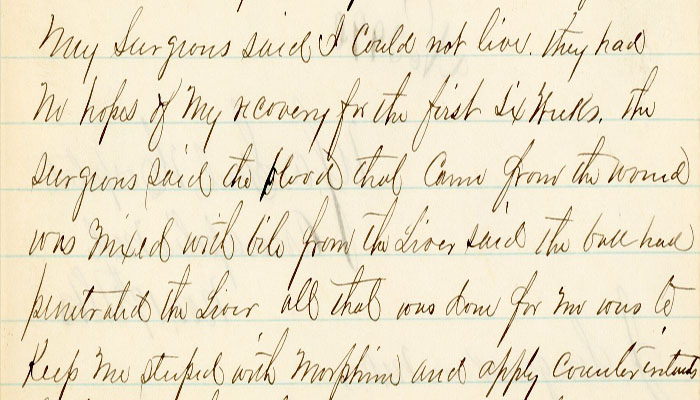 My Surgeons said I Could not live. They had
No hopes of My recovery for the first Six Weeks. The
Surgeons said the blood that Came from the wound
was Mixed with bile from the Liver said the ball had
penetrated the Liver all that was done for me was to
Keep Me stupid with Morphine and apply